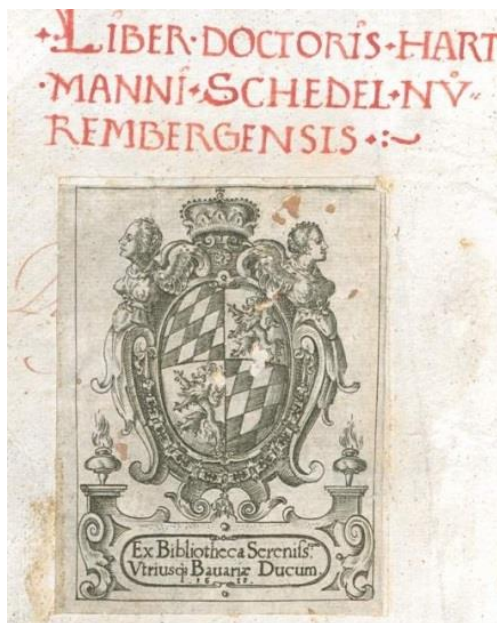 ·LIBER·DOCTORIS·HART
·MANNI·SCHEDEL·NV̊〃
REMBERGENSIS·:~
Ex Bibliotheca Sereniss.rum
Vtriusq₃ Bauariæ Ducum.
1618.